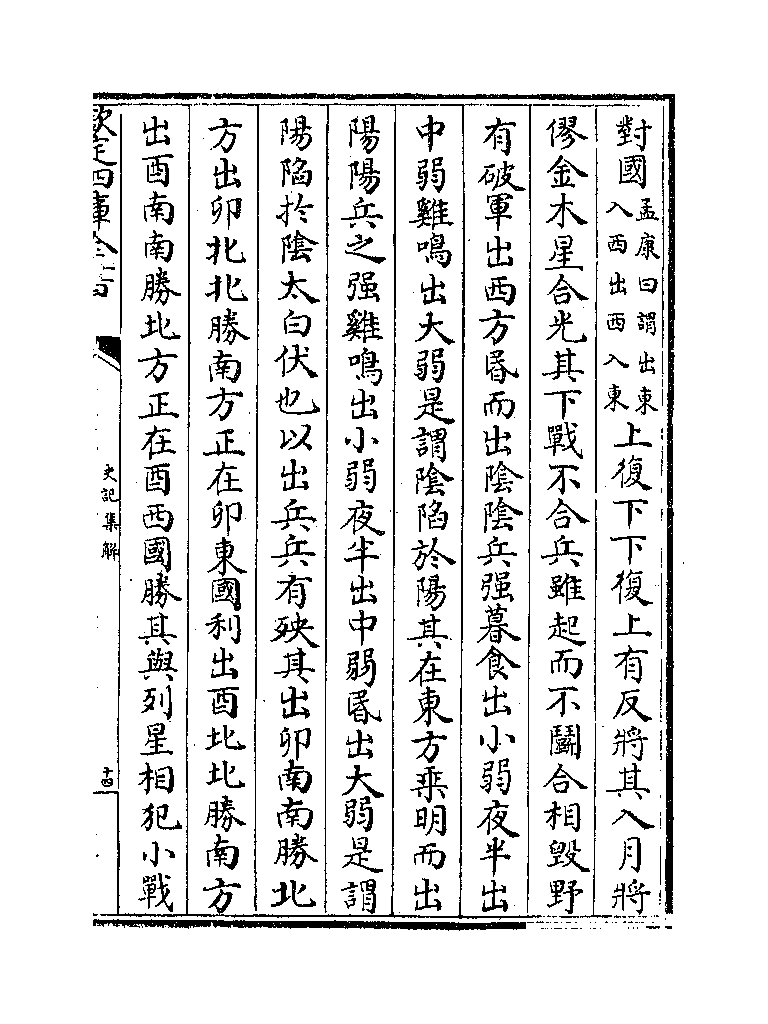 對國孟康曰謂出東入西出西入東上復下下復上有反將其入月將
僇金木星合光其下戰不合兵雖起而不鬭合相毁野
有破軍出西方昬而出陰陰兵强暮食出小弱夜半出
中弱雞鳴出大弱是謂陰陷於陽其在東方乗明而出
陽陽兵之强雞鳴出小弱夜半出中弱昬出大弱是謂
陽陷扵陰太白伏也以出兵兵有殃其出卯南南勝北
方出卯北北勝南方正在卯東國利出酉北北勝南方
出酉南南勝北方正在酉西國勝其與列星相犯小戰
欽定四庫全書
史記集解
十四